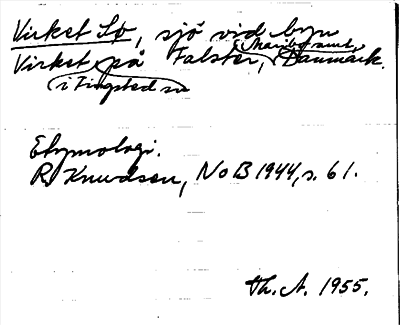 Virket Sø, sjö vid byn
Maribo amt,
Virket på Falster, Danmark.
i Tingsted sn
Etymologi.
R. Knudsen, NoB 1944, s. 61.
Th. A. 1955.